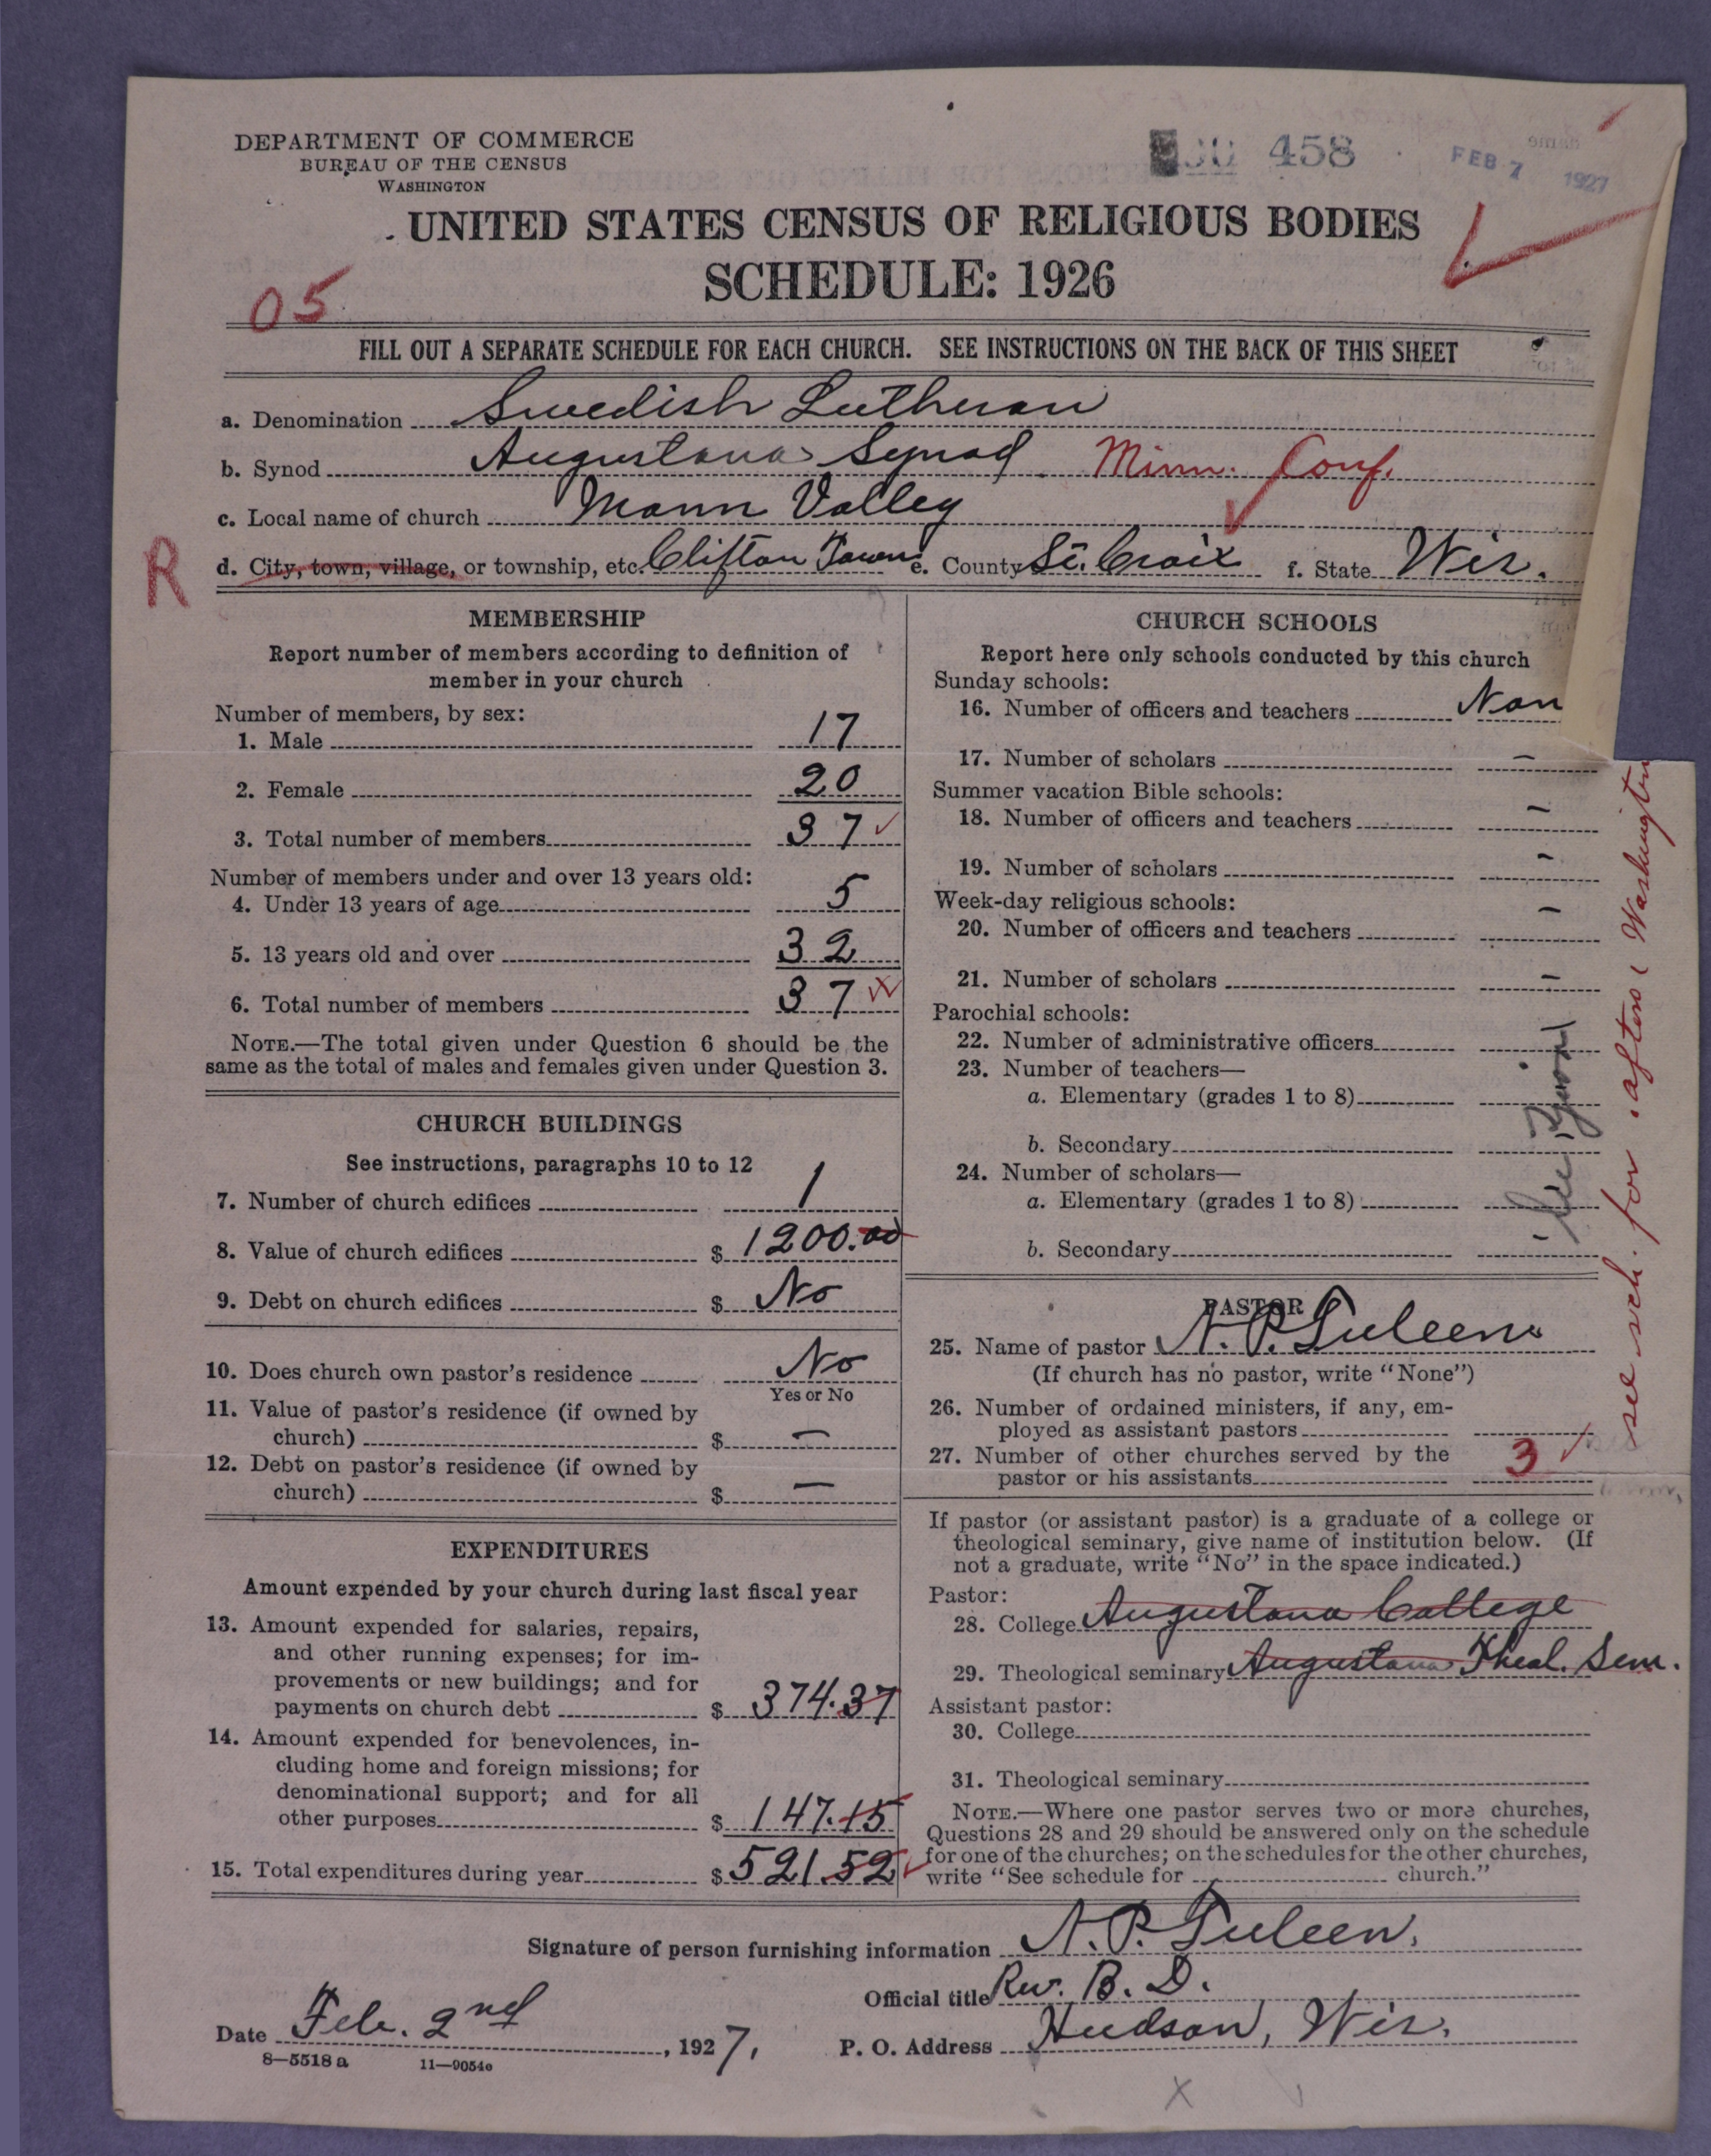 DEPARTMENT OF COMMERCE
BUREAU OF THE CENSUS
WASHINGTON
458
FEB 7 1927
UNITED STATES CENSUS OF RELIGIOUS BODIES
SCHEDULE: 1926
05
FILL OUT A SEPARATE SCHEDULE FOR EACH CHURCH. SEE INSTRUCTIONS ON THE BACK OF THIS SHEET
a. Denomination Swedish Lutheran
b. Synod Augustana Synod Minn. Conf.
c. Local name of church Mann Valley
R
d. City, town, village, or township, etc. Clifton Town e. County St. Croix f. State Wis.
MEMBERSHIP
Report number of members according to definition of
member in your church
Number of members, by sex:
1. Male 17
2. Female 20
3. Total number of members 37
Number of members under and over 13 years old:
4. Under 13 years of age 5
5. 13 years old and over 32
6. Total number of members 37
NOTE.—The total given under Question 6 should be the
same as the total of males and females given under Question 3.
CHURCH BUILDINGS
See instructions, paragraphs 10 to 12
7. Number of church edifices 1
8. Value of church edifices $ 1200.00
9. Debt on church edifices $ No
10. Does church own pastor's residence No
Yes or No
11. Value of pastor's residence (if owned by
church) $ —
12. Debt on pastor's residence (if owned by
church) $ —
EXPENDITURES
Amount expended by your church during last fiscal year
13. Amount expended for salaries, repairs,
and other running expenses; for im-
provements or new buildings; and for
payments on church debt $ 374.37
14. Amount expended for benevolences, in-
cluding home and foreign missions; for
denominational support; and for all
other purposes $ 147.15
15. Total expenditures during year $ 521.52
CHURCH SCHOOLS
Report here only schools conducted by this church
Sunday schools:
16. Number of officers and teachers Non
17. Number of scholars —
Summer vacation Bible schools:
18. Number of officers and teachers —
19. Number of scholars —
Week-day religious schools:
20. Number of officers and teachers —
21. Number of scholars —
Parochial schools:
22. Number of administrative officers
23. Number of teachers—
a. Elementary (grades 1 to 8)
b. Secondary
24. Number of scholars—
a. Elementary (grades 1 to 8)
b. Secondary
PASTOR
25. Name of pastor N. P. Tuleen
(If church has no pastor, write "None")
26. Number of ordained ministers, if any, em-
ployed as assistant pastors
27. Number of other churches served by the
pastor or his assistants 3
If pastor (or assistant pastor) is a graduate of a college or
theological seminary, give name of institution below. (If
not a graduate, write "No" in the space indicated.)
Pastor:
28. College Augustana College
29. Theological seminary Augustana Theol. Sem.
Assistant pastor:
30. College
31. Theological seminary
NOTE.—Where one pastor serves two or more churches,
Questions 28 and 29 should be answered only on the schedule
for one of the churches; on the schedules for the other churches,
write "See schedule for church."
see sch. for Washington
Signature of person furnishing information N. P. Tuleen.
Official title Rev. B. D.
Date Feb. 2nd, 1927,
P. O. Address Hudson, Wis.
8—5518 a 11—9054e